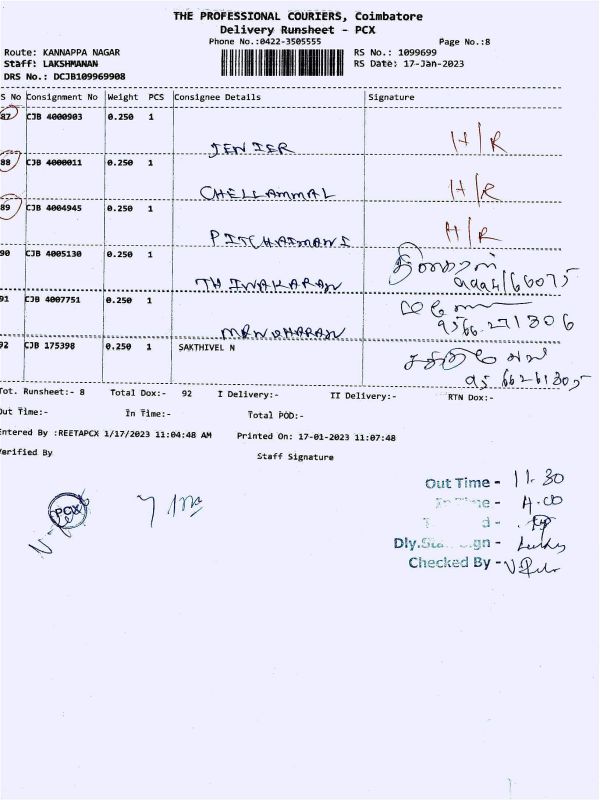 THE PROFESSIONAL COURIERS, Coimbatore
Delivery Runsheet - PCX
Phone No.:0422-3505555 Page No.:8
Route: KANNAPPA NAGAR RS No.: 1099699
Staff: LAKSHMANAN RS Date: 17-Jan-2023
DRS No.: DCJB109969908
S No Consignment No Weight PCS Consignee Details Signature
87 CJB 4000903 0.250 1
JENIER H/R
88 CJB 4000011 0.250 1
CHELLAMMAL H/R
89 CJB 4004945 0.250 1
PITCHAIMANI H/R
90 CJB 4005130 0.250 1
THIWAKARAN
91 CJB 4007751 0.250 1
MANOHARAN 9566271806
92 CJB 175398 0.250 1 SAKTHIVEL N சக்திவேல்
Tot. Runsheet:- 8 Total Dox:- 92 I Delivery:- II Delivery:- RTN Dox:-
Out Time:- In Time:- Total POD:-
Entered By :REETAPCX 1/17/2023 11:04:48 AM Printed On: 17-01-2023 11:07:48
Verified By Staff Signature
Out Time - 11.30
In Time - 4.00
PCX
Dly.Staff Sign -
Checked By -